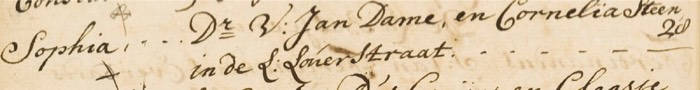 Sophia, . . . Dr. V: Jan Dame, en Cornelia Steen
in de L: Loüer straat. . . . . . . 28